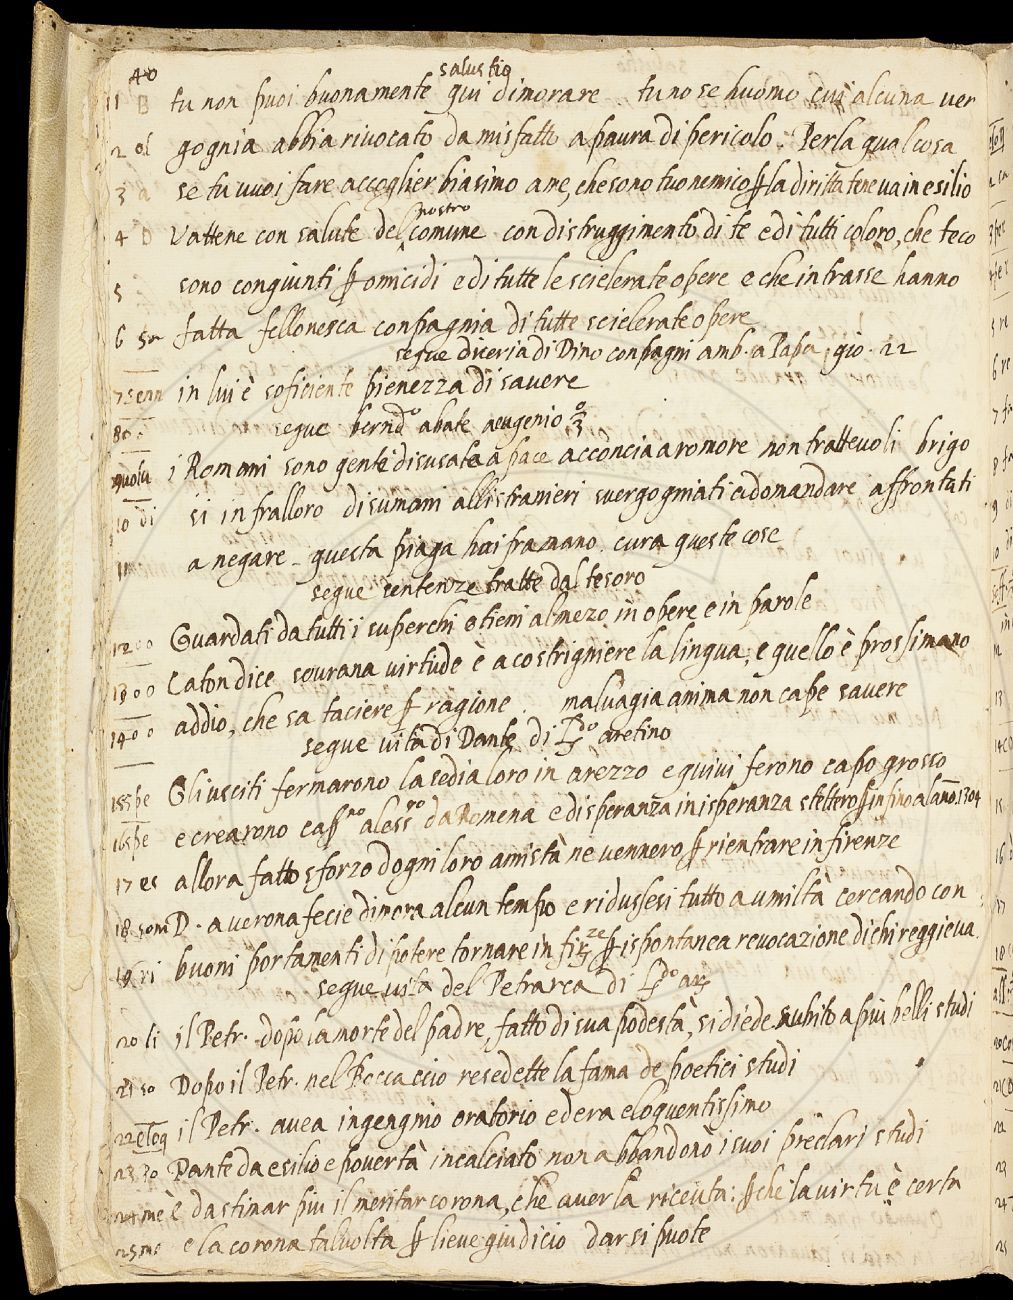 40
salustio
11 B tu non puoi buonamente qui dimorare tu no se huomo cui alcuna ver
2 ol gognia abbia rivocato da misfatto a paura di pericolo. Per la qual cosa
3 a se tu vuoi fare accoglier biasimo a me, che sono tuo nemico ꝑ la diritta tene va in esilio
4 D Vattene con salute del nostro comune con distruggimento di te e di tutti coloro, che teco
5 sono congiunti ꝑ omicidi e di tutte le scielerate opere e che intrasse hanno
6 fatta fellonesca conpagnia di tutte scielerate opere
segue diceria di Dino conpagni amb. a Papa gio. 22
7 in lui è soficiente pienezza di savere
8 segue bernd.o abate a eugenio
9 i Romani sono gente disusata a pace acconcia a romore non trattevoli brigo
10 di si infralloro disumani alli stranieri svergogniati a domandare affrontati
11 a negare - questa piaga hai fra mano. cura queste cose
segue sentenze tratte dal tesoro
12 Guardati da tutti i superchi e tieni al mezo in opere e in parole
13 Caton dice sovrana virtude è a costrigniere la lingua, e quello è prossimano
14 addio, che sa taciere ꝑ ragione. malvagia anima non cape savere
segue vita di Dante di L.do aretino
15 Gli usciti fermarono la sedia loro in arezzo e quivi ferono capo grosso
16 e crearono cap.no aless.ro da Romena e di speranza in isperanza stettero ꝑ infino al ano. 1304
17 es allora fatto sforzo d ogni loro amistà ne vennero ꝑ rientrare in firenze
18 som D. a verona fecie dimora alcun tempo e ridussesi tutto a umiltà cercando con
19 ri buoni portamenti di potere tornare in fi.ze ꝑ ispontanea revocazione di chi reggieva.
segue vita del Petrarca di L.do ar.
20 li il Petr. dopo la morte del padre, fatto di sua podestà, si diede subito a piu belli studi
21 so Dopo il Petr. nel Boccaccio resedette la fama de poetici studi
22 eloq il Petr. avea ingegnio oratorio ed era eloquentissimo
23 Dante da esilio e povertà incalciato non abbandonò i suoi preclari studi
24 me è da stimar piu il meritar corona, che averla riceuta: ꝑche la virtu è certa
25 e la corona talvolta ꝑ lieve giudicio darsi puote